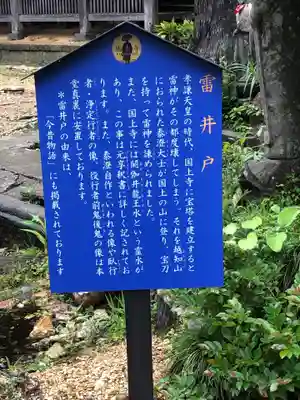 雷井戸
孝謙天皇の時代、国上寺に宝塔を建立すると
雷神がその都度壊してしまう。それを越知山
におられた泰澄大士が国上の山に登り、宝刀
を持って雷神を諌められました。
また、国上寺には閼伽井龍王水という霊水が
あり、この事は元亨釈書に詳しく記されてお
ります。また、泰澄自作といわれる像や臥行
者・浄定行者の像、役行者前鬼後鬼の像は本
堂真裏に安置しております。
＊雷井戸の由来は、
「今昔物語」にも掲載されております